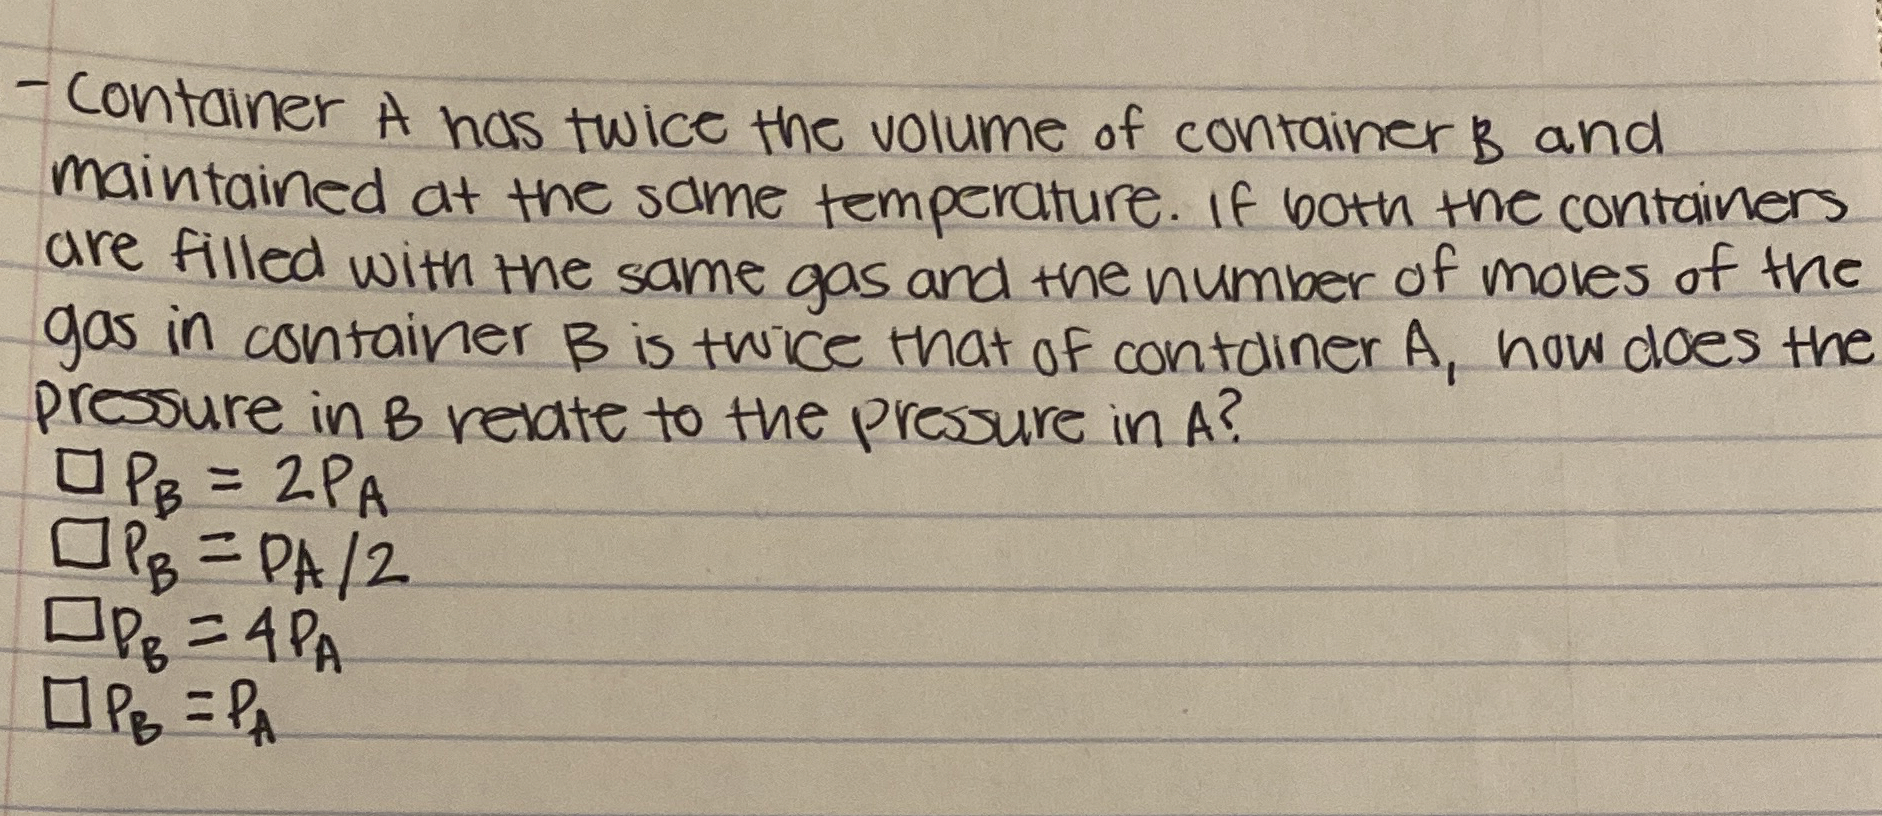 - Container A has twice the volume of container B and
maintained at the same temperature. If both the containers
are filled with the same gas and the number of moles of the
gas in container B is twice that of container A, how does the
pressure in B relate to the pressure in A?
☐ P_B = 2P_A
☐ P_B = P_A/2
☐ P_B = 4P_A
☐ P_B = P_A